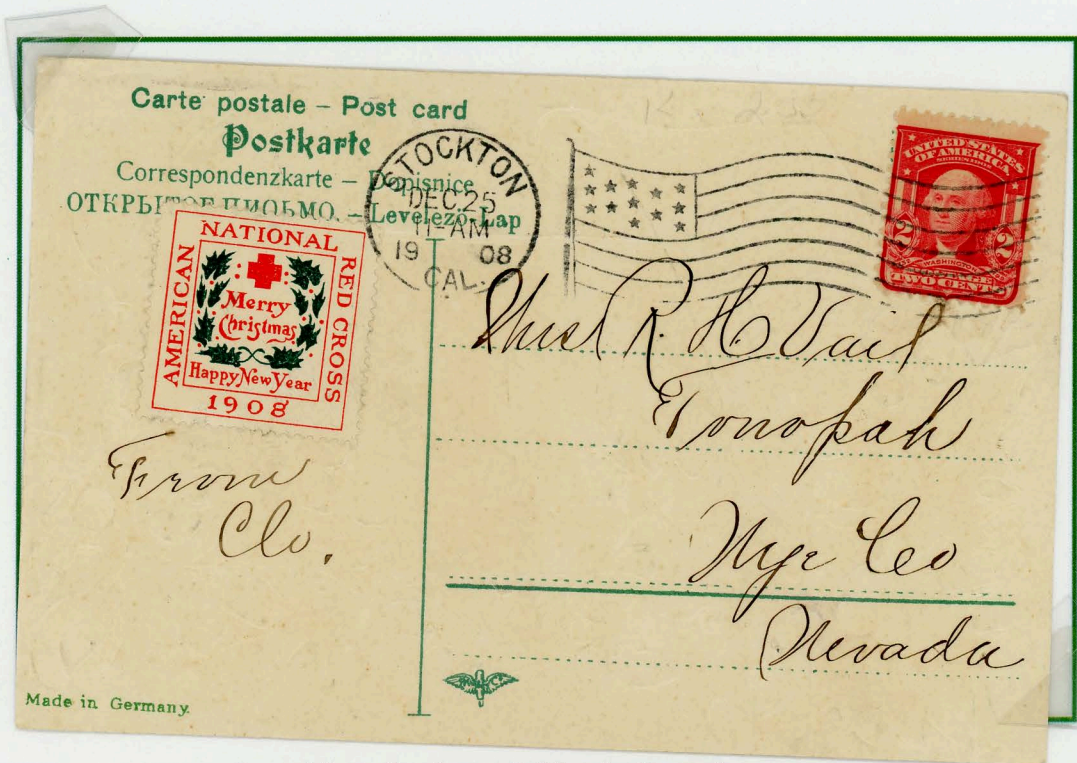 Carte postale – Post card
Postkarte
Correspondenzkarte – Dopisnice
ОТКРЫТОЕ ПИСЬМО. – Levelező-Lap
STOCKTON
DEC. 25
11-AM
19 08
CAL.
UNITED STATES
OF AMERICA
SERIES 1902
2 2
WASHINGTON
TWO CENTS
AMERICAN
NATIONAL
RED CROSS
Merry
Christmas
Happy New Year
1908
R. H. Vail
Tonopah
Nye Co
Nevada
From
Clo.
Made in Germany.